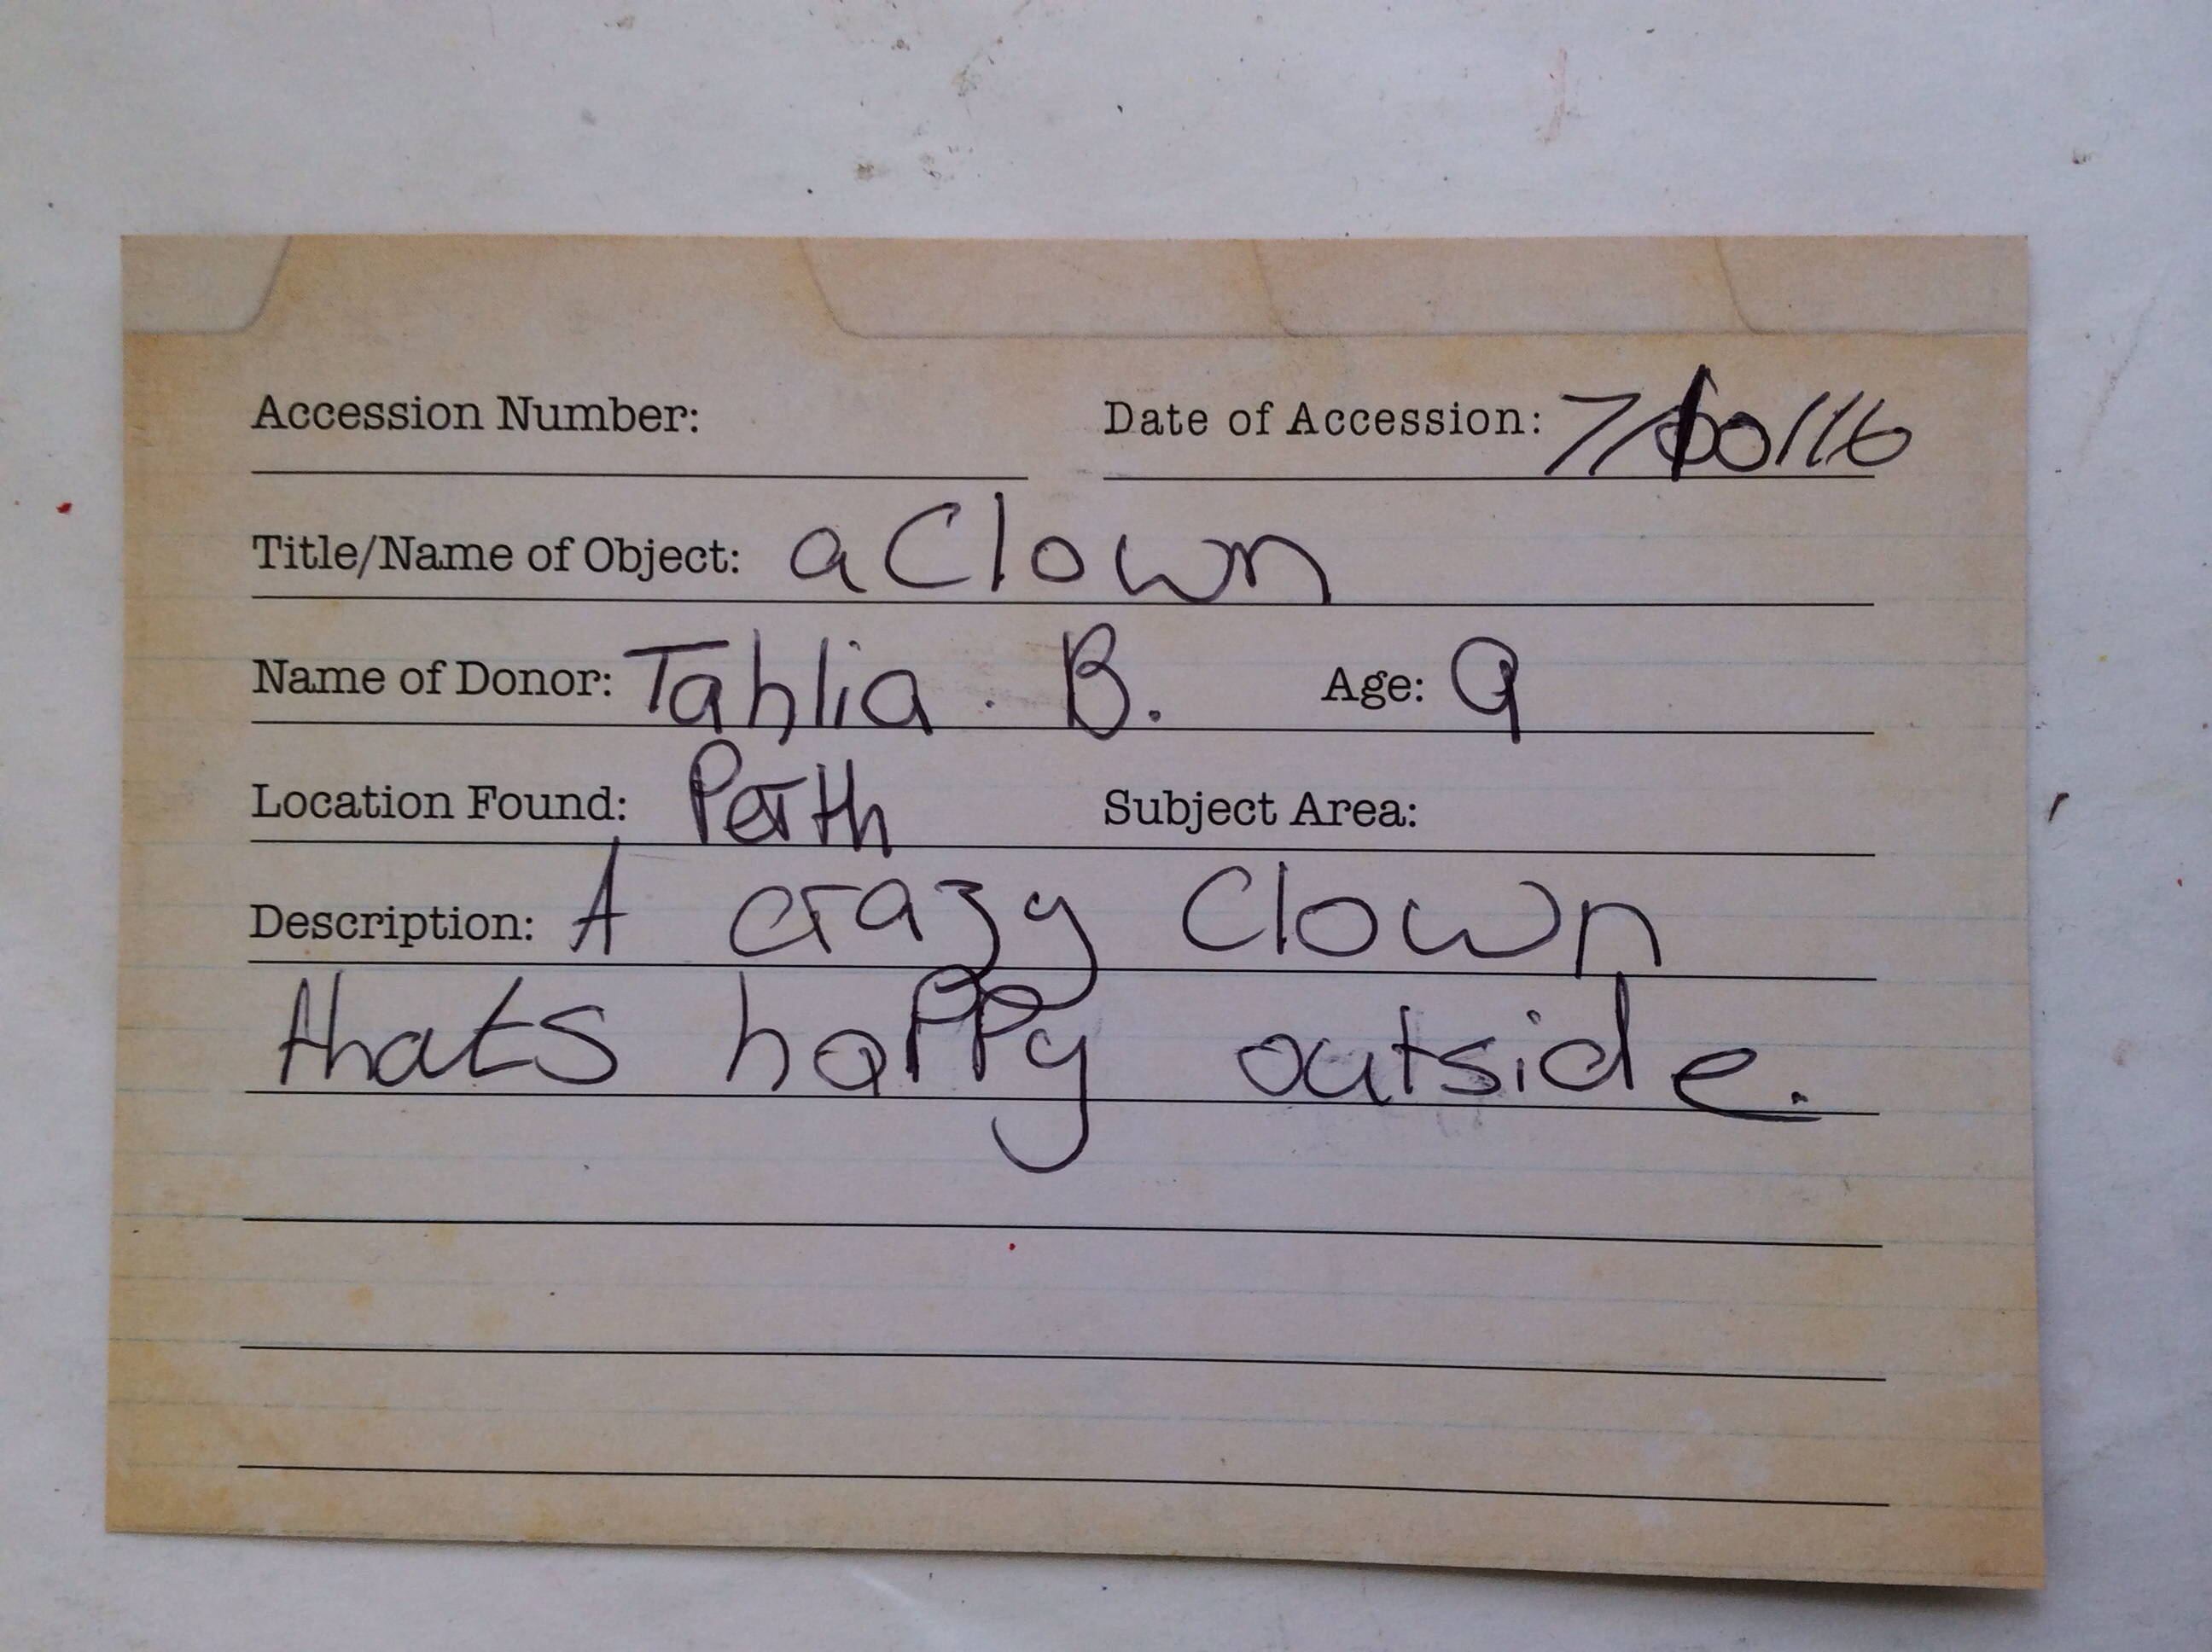 Accession Number: Date of Accession: 7/10/16
Title/Name of Object: a Clown
Name of Donor: Tahlia . B. Age: 9
Location Found: Perth Subject Area:
Description: A crazy Clown
thats happy outside.